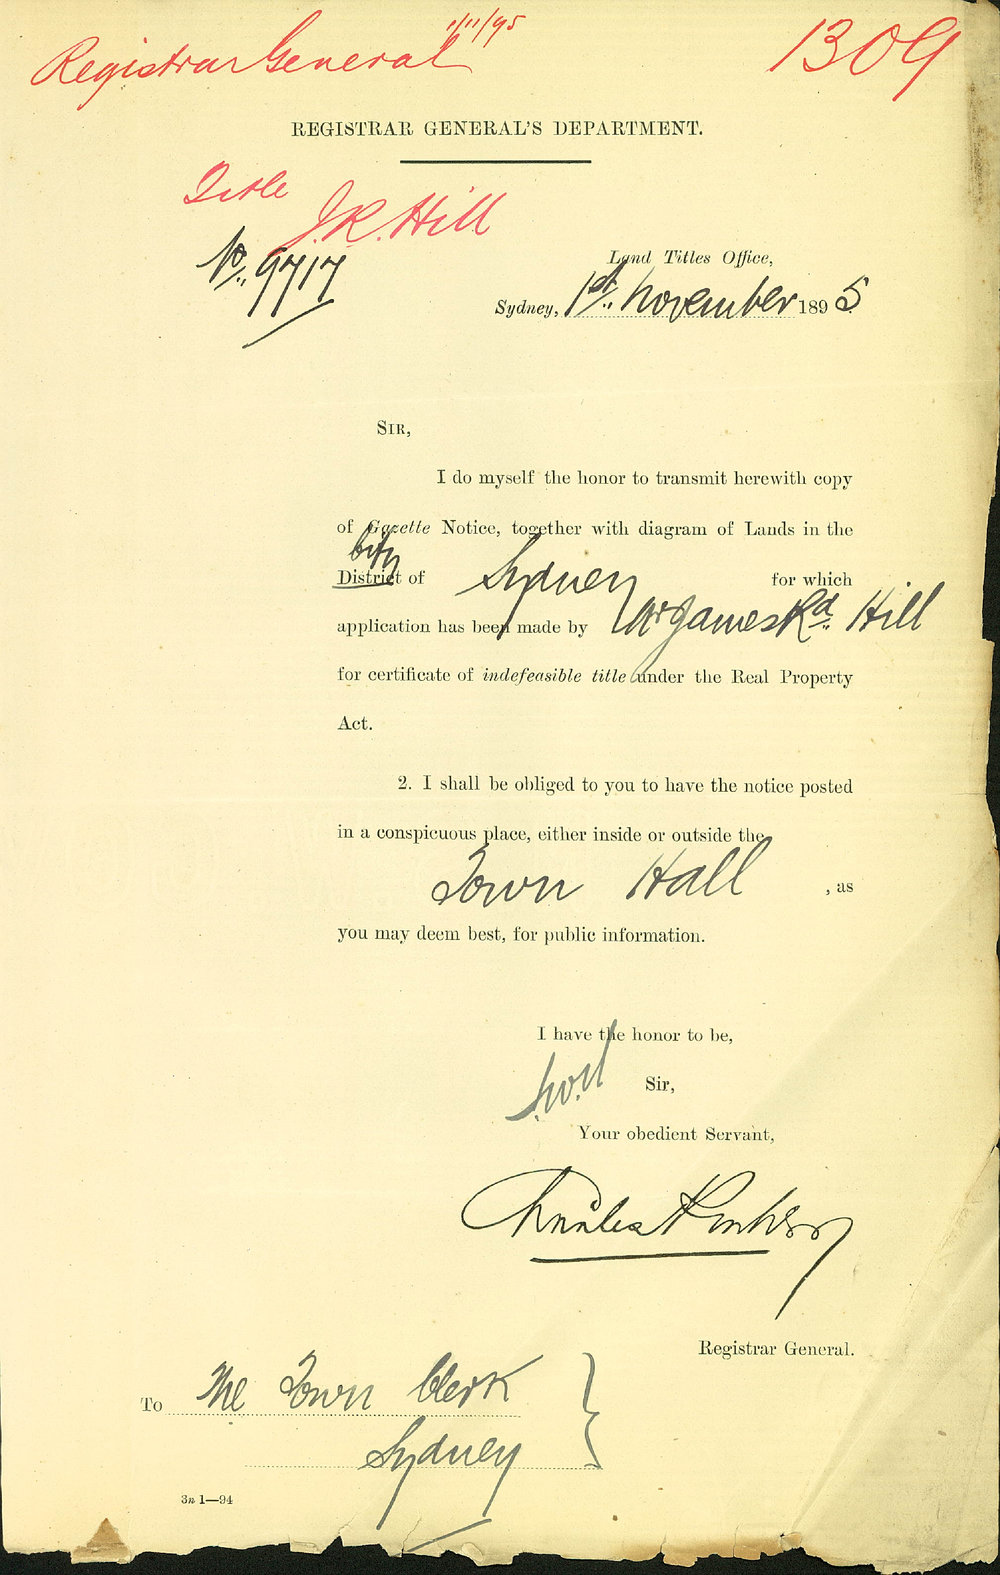 Registrar General 1/11/95
1309
REGISTRAR GENERAL'S DEPARTMENT.
Title
J.R. Hill
No. 9717
Land Titles Office,
Sydney, 1st. November 1895
SIR,
I do myself the honor to transmit herewith copy
of Gazette Notice, together with diagram of Lands in the
City
District of Sydney for which
application has been made by Mr James Rd. Hill
for certificate of indefeasible title under the Real Property
Act.
2. I shall be obliged to you to have the notice posted
in a conspicuous place, either inside or outside the
Town Hall, as
you may deem best, for public information.
I have the honor to be,
Sir,
Your obedient Servant,
Charles
Registrar General.
To The Town Clerk
Sydney
3n 1—94